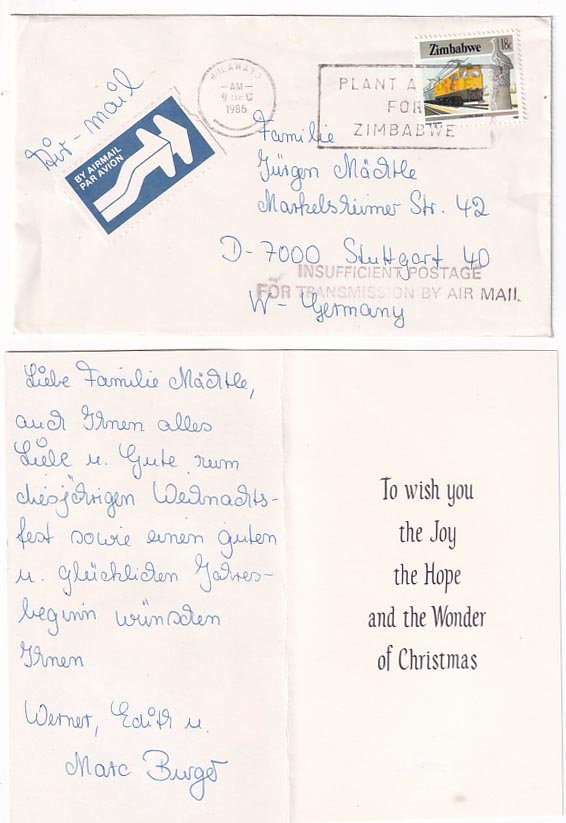 Air-mail
BY AIRMAIL
PAR AVION
AM
1986
PLANT A
FOR
ZIMBABWE
Zimbabwe
18c
Familie
Jürgen Mächtle
Markelsheimer Str. 42
D-7000 Stuttgart 40
W-Germany
INSUFFICIENT POSTAGE
FOR TRANSMISSION BY AIR MAIL
Liebe Familie Mächtle,
auch Ihnen alles
Liebe u. Gute zum
diesjährigen Weihnachts-
fest sowie einen guten
u. glücklichen Jahres-
beginn wünschen
Ihnen
Werner, Edith u.
Marc Burger
To wish you
the Joy
the Hope
and the Wonder
of Christmas